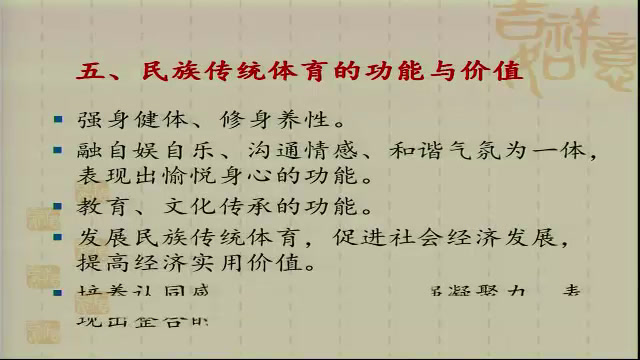 吉祥如意
五、民族传统体育的功能与价值
强身健体、修身养性。
融自娱自乐、沟通情感、和谐气氛为一体，
表现出愉悦身心的功能。
教育、文化传承的功能。
发展民族传统体育，促进社会经济发展，
提高经济实用价值。
培养认同感 凝聚力 表
现出整合的